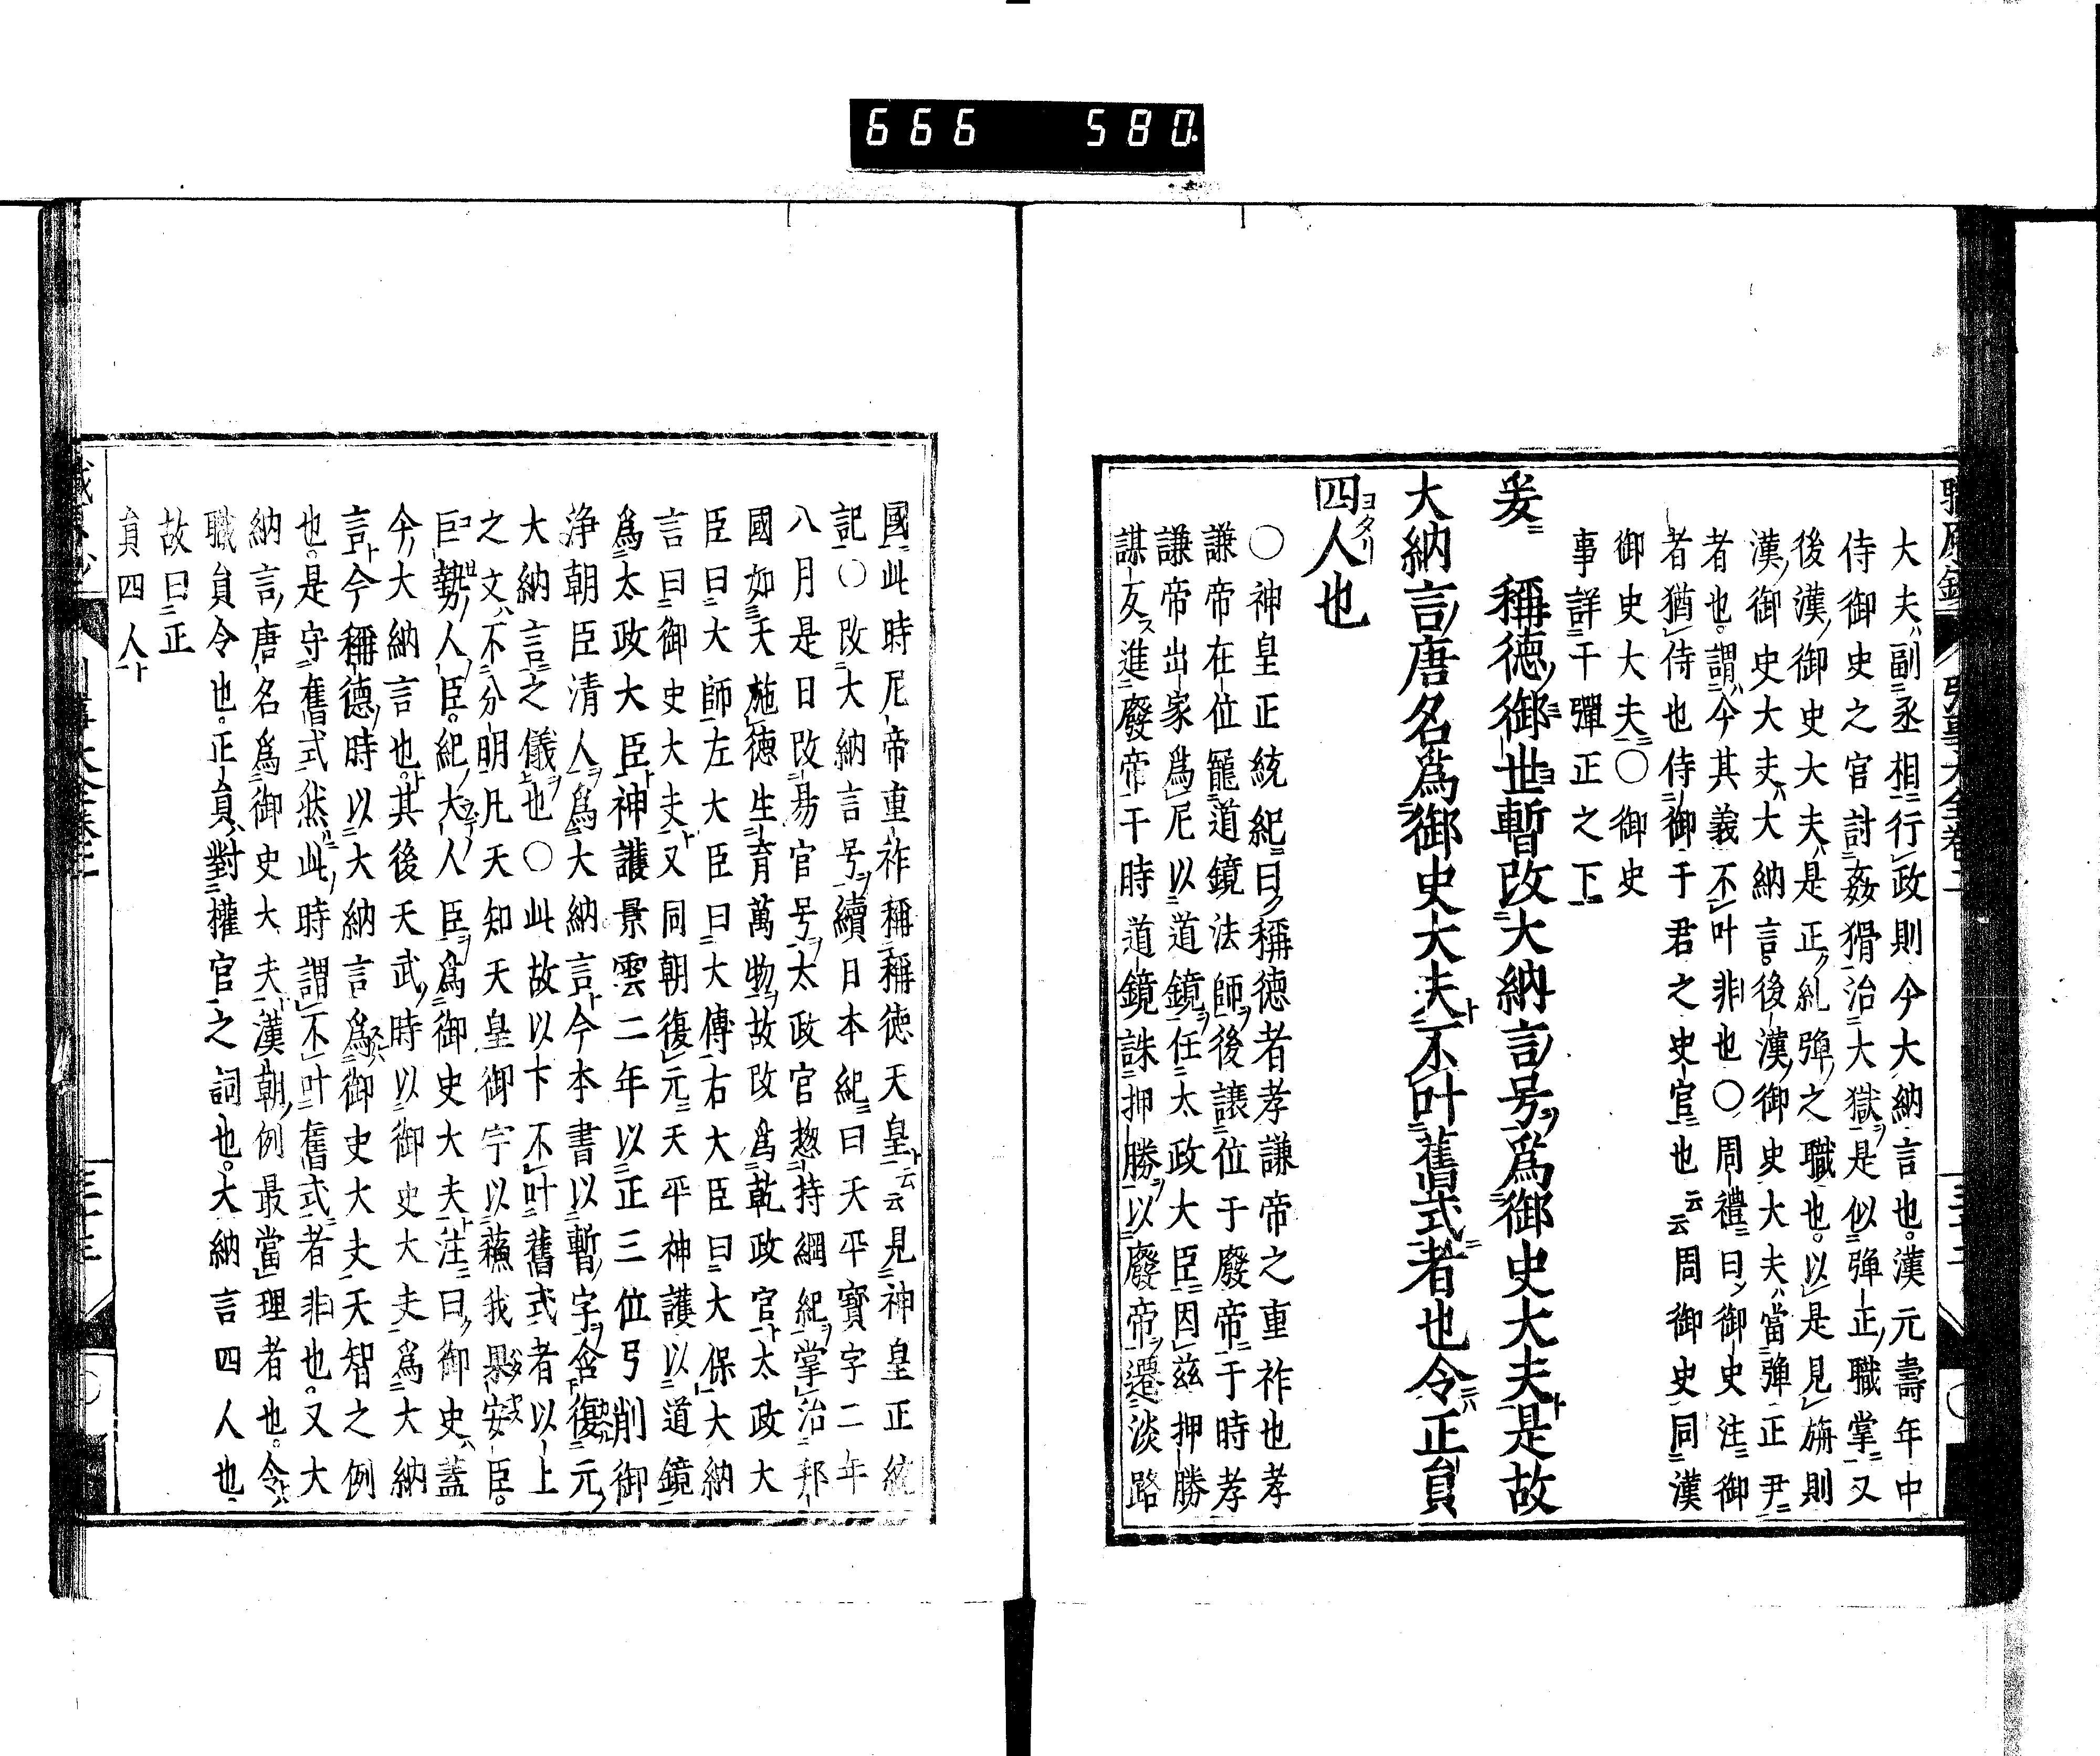 666 580.
大夫ハ副ニ丞相一行政則今大納言也。漢元壽年中
侍御史之官討姦猾治大獄ヲ是似彈正ノ職掌ニ又
後漢ノ御史大夫ハ是正ク糺彈ノ之職也。以是見旃則
漢ノ御史大夫ハ大納言。後漢ノ御史大夫ハ當彈正尹ニ
者也。謂ハ今其義不叶非也〇周禮ニ曰ク御史注ニ御
者猶侍也侍御于君之史官也云云周御史同漢
御史大夫ニ〇御史
事詳ニ于彈正之下
爰ニ稱德ノ御世暫改大納言ノ号ヲ爲御史大夫ト是故ニ
大納言ノ唐名爲御史大夫ト不叶舊式ニ者也令ニハ正員
四人也
〇神皇正統紀ニ曰ク稱德者孝謙帝之重祚也孝
謙帝在位寵道鏡法師ヲ後讓位于廢帝ニ于時孝
謙帝出家爲尼以道鏡ヲ任太政大臣ニ因茲押勝
謀反ス進廢帝于時道鏡誅押勝ヲ以廢帝ヲ遷淡路
國ニ此時尼帝重祚稱稱德天皇ト云云見神皇正統
記ニ〇改大納言号ヲ續日本紀ニ曰天平寶字二年
八月是日改易官号ヲ太政官惣持綱紀ヲ掌治邦
國如天施德生育萬物ヲ故改爲乾政官ト太政大
臣曰大師左大臣曰大傅右大臣曰大保大納
言曰御史大夫ト又同朝復元ニ天平神護以道鏡
爲太政大臣ト神護景雲二年以正三位弓削御
淨朝臣淸人ヲ爲大納言ト今本書以暫ノ字ヲ含復元ノ
大納言之儀ヲ也〇此故以下不叶舊式者以上
之文ハ不分明凡天知天皇御宇以蘓我果安臣。
巨勢ノ人ノ臣。紀ノ大人臣ヲ爲御史大夫ト注ニ曰ク御史ハ蓋
今ノ大納言也ト。其後天武ノ時以御史大夫爲大納
言ト今稱德ノ時以大納言爲御史大夫天智之例
也。是守舊式然ハ此ノ時謂不叶舊式者非也。又大
納言ノ唐名爲御史大夫ト漢朝ノ例最當理者也。令ハ
職員令也。正員ハ對權官之詞也。大納言四人也
故曰正
員四人ト